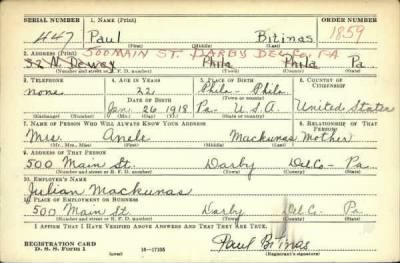 SERIAL NUMBER 1. NAME (Print) ORDER NUMBER
447 Paul Bitinas 1859
(First) (Middle) (Last)
500 MAIN ST. DARBY DEL. Co., PA
2. ADDRESS (Print)
52 N. Dewey Phila Phila Pa.
(Number and street or R. F. D. number) (Town) (County) (State)
3. TELEPHONE 4. AGE IN YEARS 5. PLACE OF BIRTH 6. COUNTRY OF CITIZENSHIP
none 22 Phila - Phila.
DATE OF BIRTH (Town or county)
Jan. 26 1918 Pa. U.S.A. United States
(Exchange) (Number) (Mo.) (Day) (Yr.) (State or country)
7. NAME OF PERSON WHO WILL ALWAYS KNOW YOUR ADDRESS 8. RELATIONSHIP OF THAT PERSON
Mrs. Anele Mackunas Mother
(Mr., Mrs., Miss) (First) (Middle) (Last)
9. ADDRESS OF THAT PERSON
500 Main St. Darby Del Co - Pa.
(Number and street or R. F. D. number) (Town) (County) (State)
10. EMPLOYER'S NAME
Julian Mackunas
11. PLACE OF EMPLOYMENT OR BUSINESS
500 Main St Darby Del Co - Pa.
(Number and street or R. F. D. number) (Town) (County) (State)
I AFFIRM THAT I HAVE VERIFIED ABOVE ANSWERS AND THAT THEY ARE TRUE.
REGISTRATION CARD
D. S. S. Form 1 (over) 16—17105 Paul Bitinas
(Registrant's signature)